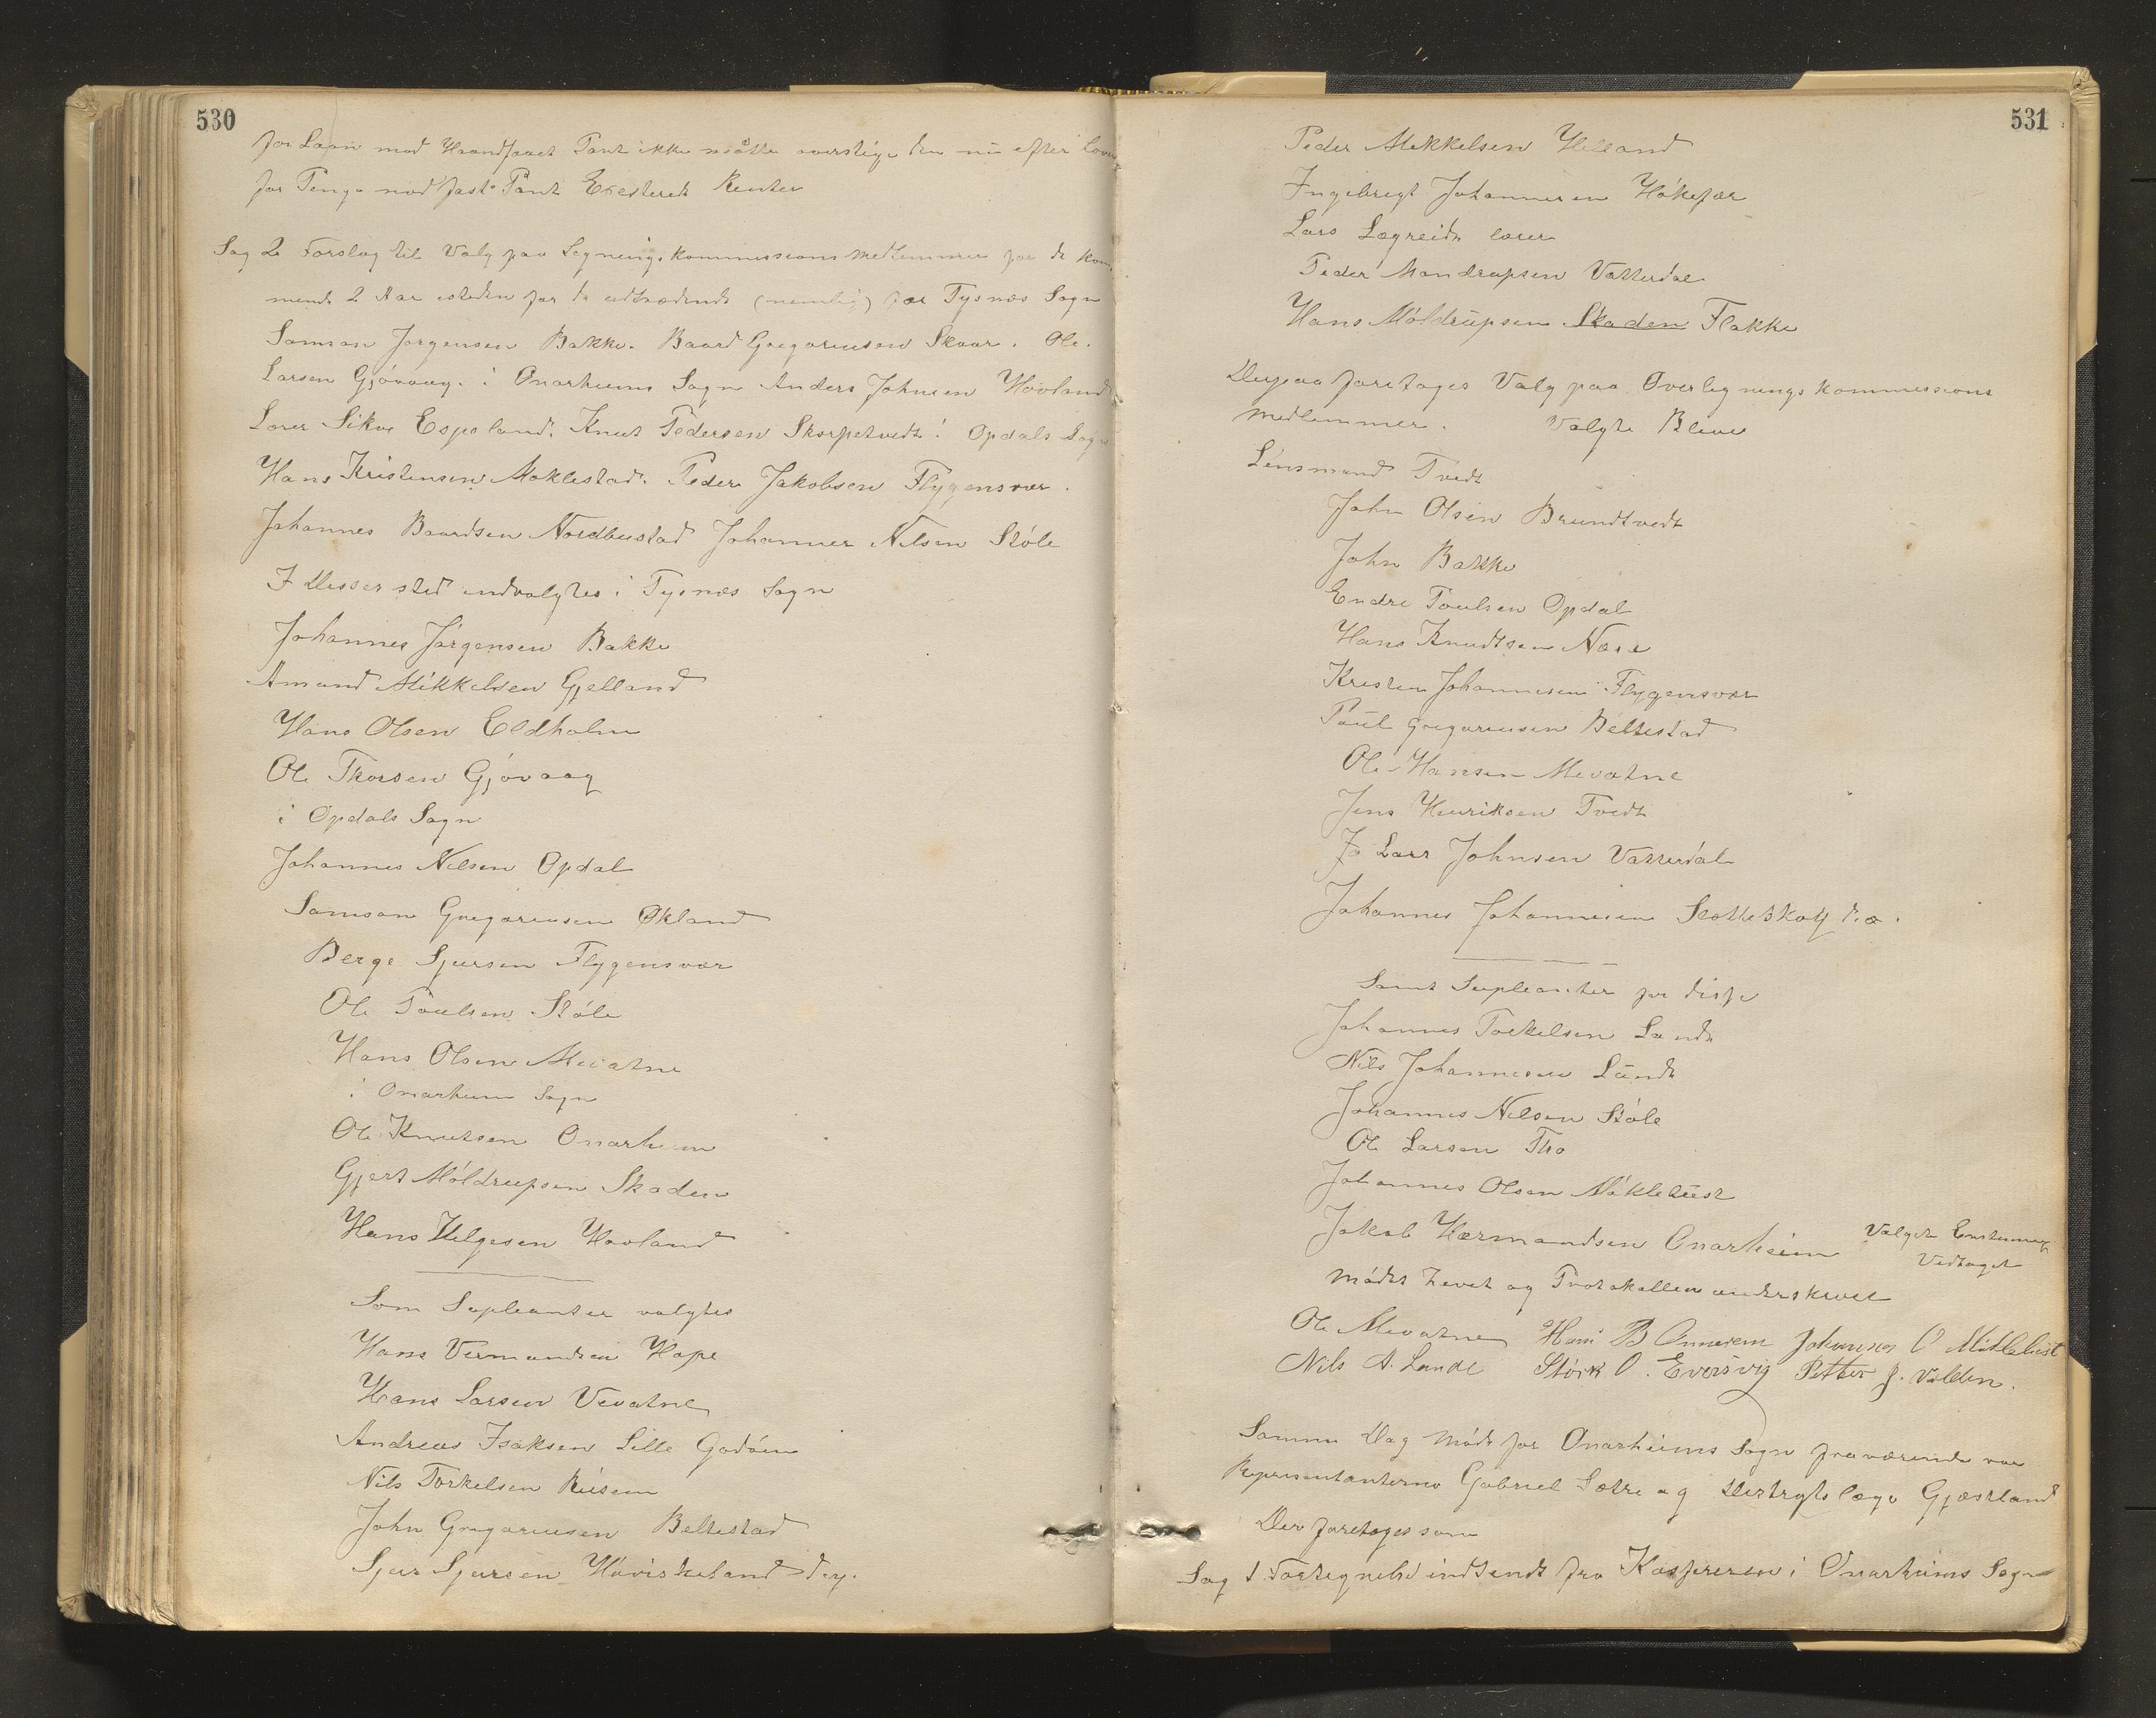 530
for Laan mod Haandfaaet Pant ikke måtte overstige den nu efter Loven
for Penge mod fast Pant Eresterede Renter
Sag 2 Forslag til Valg paa Ligningskommissions Medlemmer for de kom
mende 2 Aar isteden for de udtrædende (nemlig) for Tysnæs Sogn
Samson Jørgensen Bakke. Baard Gregoriusen Skaar. Ole
Larsen Gjøvaag. i Onarheims Sogn Anders Johnsen Hovland
Lærer Sikve Espeland. Knut Pedersen Skorpetvedt i Opdals Sogn
Hans Kristensen Moklestad. Peder Jakobsen Flygensvær.
Johannes Baardsen Nordbustad Johannes Nilsen Støle
I Disses sted indvalgtes i Tysnæs Sogn
Johannes Jørgensen Bakke
Amund Mikkelsen Gjelland
Hans Olsen Eldholm
Ole Thorsen Gjøvaag
i Opdals Sogn
Johannes Nilsen Opdal
Samson Gregoriusen Økland
Berge Sjursen Flygensvær
Ole Poulsen Støle
Hans Olsen Mevatne
i Onarheim Sogn
Ole Knutsen Onarheim
Gjert Møldrupsen Skaden
Hans Helgesen Hovland
Som Supleanter valgtes
Hans Vermundsen Hope
Hans Larsen Vevatne
Andreas Isaksen Lille Godøen
Nils Torkelsen Reisem
John Gregoriusen Beltestad
Sjur Sjursen Høviskeland
531
Peder Mekkelsen Helland
Ingebrigt Johannesen Håkefær
Lars Lægreide lærer
Peder Mandrupsen Vatterdal
Hans Møldrupsen Skaden Flakke
Derpaa foretages Valg paa Overlignings kommissions
medlemmer. Valgte Bleve
Lensmand Tvedt
John Olsen Brundtvedt
John Bakke
Endre Poulsen Opdal
Hans Knudtsen Næse
Kristen Johannesen Flygensvær
Paul Gregoriusen Beltestad
Ole Hansen Mevatne
Jens Henriksen Tvedt
Lars Johnsen Vatterdal
Johannes Johannesen
Samt Supleanter for disse
Johannes Torkelsen Lande
Nils Johannesen Lunde
Johannes Nilsen Støle
Ole Larsen Tho
Johannes Olsen Mikletust
Jakob Hermandsen Onarheim Valget Enstemmig
Vedtaget
Mødet hevet og Protokollen underskrevet
Ole Mevatne Hans B Onnarem Johannes O Miklatust
Nils A. Lande Störk O. Eversvig Petter J. Valden.
Samme Dag Møde for Onarheims Sogn fraværende var
Representanterne Gabriel Sætre og Destrigtslæge Gjestland
Der foretages som
Sag 1 Fortegnelse indsendt fra Kasserer i Onarheims Sogn